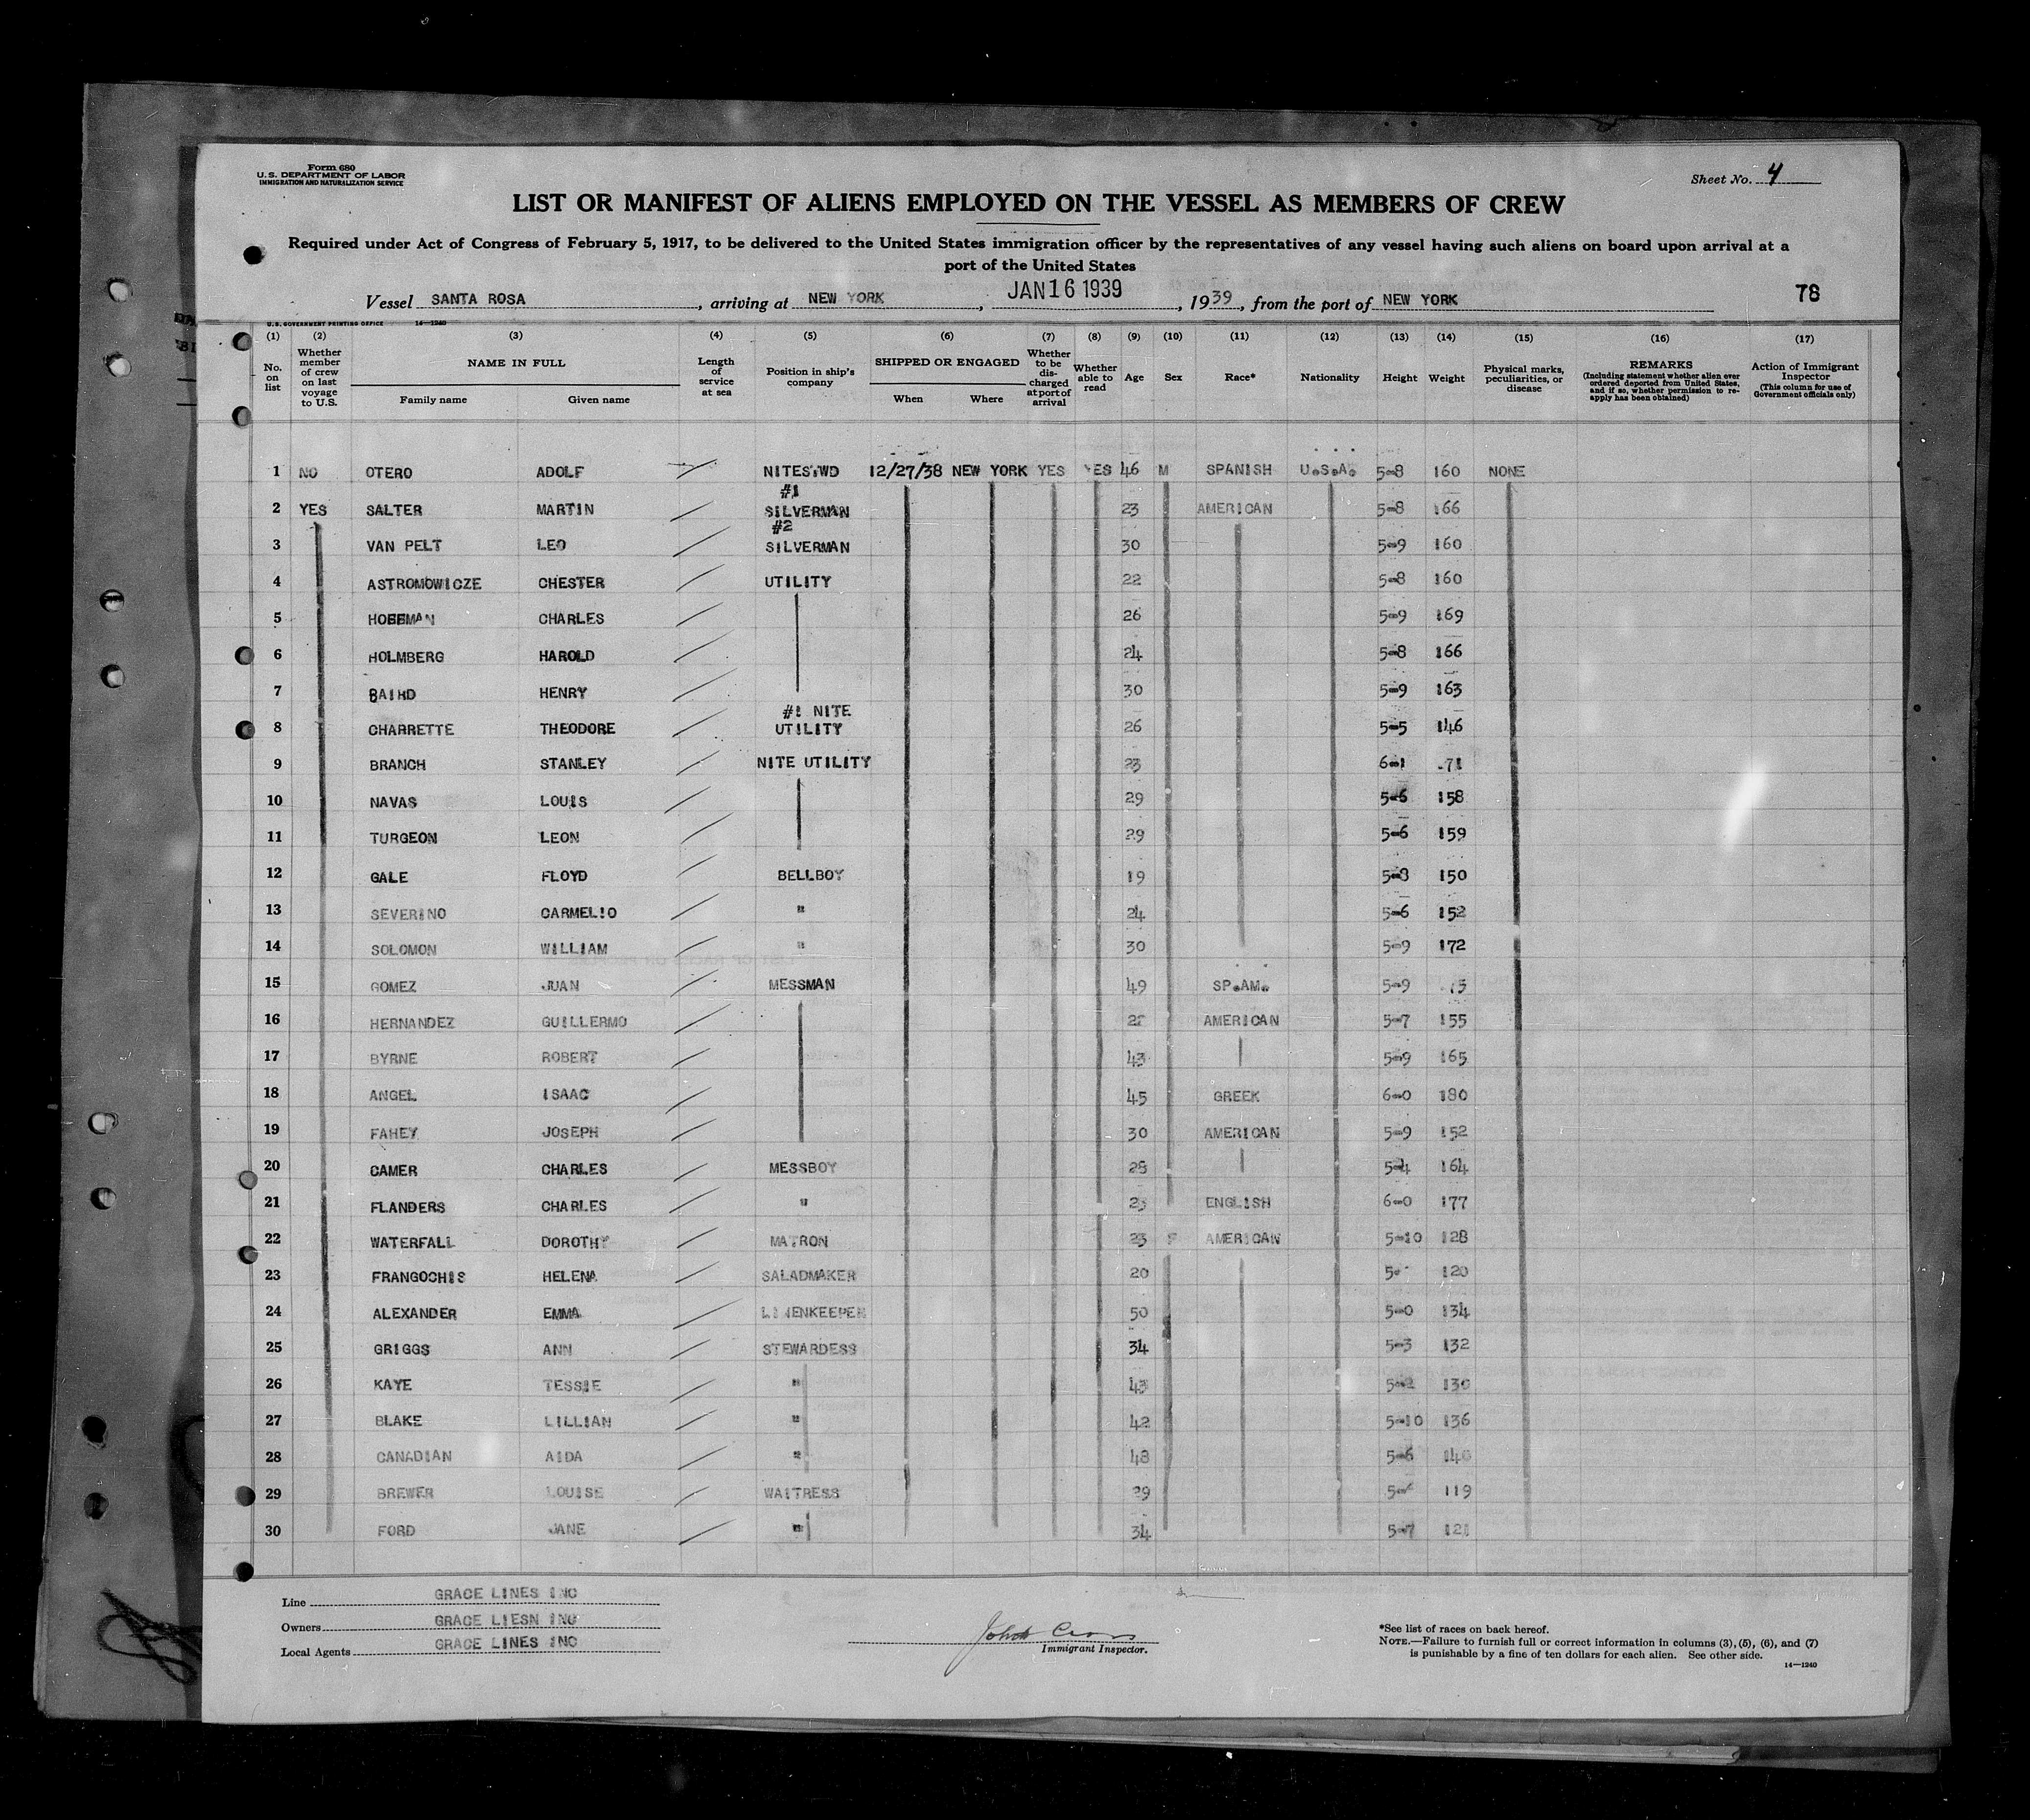 Form 680
U.S. DEPARTMENT OF LABOR
IMMIGRATION AND NATURALIZATION SERVICE
Sheet No. 4
LIST OR MANIFEST OF ALIENS EMPLOYED ON THE VESSEL AS MEMBERS OF CREW
Required under Act of Congress of February 5, 1917, to be delivered to the United States immigration officer by the representatives of any vessel having such aliens on board upon arrival at a
port of the United States
Vessel SANTA ROSA, arriving at NEW YORK, JAN 16 1939, 1939, from the port of NEW YORK
78
U.S. GOVERNMENT PRINTING OFFICE 14-1240
(1) (2) (3) (4) (5) (6) (7) (8) (9) (10) (11) (12) (13) (14) (15) (16) (17)
No. on list
Whether member of crew on last voyage to U.S.
NAME IN FULL
Family name Given name
Length of service at sea
Position in ship's company
SHIPPED OR ENGAGED
When Where
Whether to be discharged at port of arrival
Whether able to read
Age
Sex
Race*
Nationality
Height
Weight
Physical marks, peculiarities, or disease
REMARKS
(Including statement whether alien ever ordered deported from United States, and if so, whether permission to reapply has been obtained)
Action of Immigrant Inspector
(This column for use of Government officials only)
1 NO OTERO ADOLF NITES.WD 12/27/38 NEW YORK YES YES 46 M SPANISH U.S.A. 5-8 160 NONE
#1
2 YES SALTER MARTIN SILVERMAN 23 AMERICAN 5-8 166
#2
3 VAN PELT LEO SILVERMAN 30 5-9 160
4 ASTROMOWICZE CHESTER UTILITY 22 5-8 160
5 CHARLES 26 5-9 169
6 HOLMBERG HAROLD 24 5-8 166
7 BAIRD HENRY 30 5-9 163
#1 NITE
8 CHARRETTE THEODORE UTILITY 26 5-5 146
9 BRANCH STANLEY NITE UTILITY 23 6-1
10 NAVAS LOUIS 29 5-6 158
11 TURGEON LEON 29 5-6 159
12 GALE FLOYD BELLBOY 19 5-8 150
13 SEVERINO CARMELIO " 24 5-6 152
14 SOLOMON WILLIAM " 30 5-9 172
15 GOMEZ JUAN MESSMAN 49 SP.AM. 5-9
16 HERNANDEZ GUILLERMO AMERICAN 5-7 155
17 BYRNE ROBERT 43 5-9 165
18 ANGEL ISAAC 45 GREEK 6-0 180
19 FAHEY JOSEPH 30 AMERICAN 5-9 152
20 CAMER CHARLES MESSBOY 28 5-4 164
21 FLANDERS CHARLES " ENGLISH 6-0 177
22 WATERFALL DOROTHY MATRON 23 F AMERICAN 5-10 128
23 FRANGOCHIS HELENA SALADMAKER 20 120
24 ALEXANDER EMMA LINENKEEPER 50 5-0 134
25 GRIGGS ANN STEWARDESS 34 5-3 132
26 KAYE TESSIE " 43 5-2 130
27 BLAKE LILLIAN " 42 5-10 136
28 CANADIAN AIDA " 48 5-6
29 BREWER LOUISE WAITRESS 29 119
30 FORD JANE " 34 5-7 121
Line GRACE LINES INC
Owners GRACE LIESN INC
Local Agents GRACE LINES INC
Immigrant Inspector.
*See list of races on back hereof.
NOTE.—Failure to furnish full or correct information in columns (3), (5), (6), and (7)
is punishable by a fine of ten dollars for each alien. See other side.
14—1240